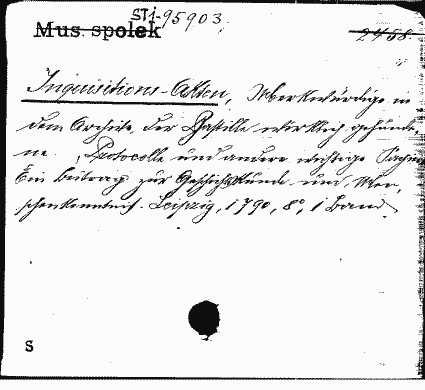 STI-95903.
Mus. spolek
2458.
Inquisitions-Akten, Merkwürdige in
dem Archive der Bastille wirklich gefunde-
ne, Protocolle und andere wichtige
Ein Beitrag zur Geschichtskunde und Men-
schenkenntniß. Leipzig, 1790, 8°, 1 Band.
S